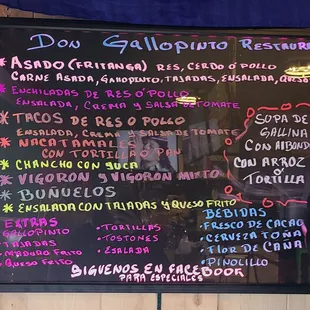 Don Gallopinto Restaura
* Asado (Fritanga) Res, Cerdo o' Pollo
Carne Asada, Gallopinto, Tajadas, Ensalada, Queso
* Enchiladas de Res o' Pollo
Ensalada, Crema y Salsa de Tomate
* Tacos de Res o Pollo
Ensalada, Crema y Salsa de Tomate
* Nacatamales
con Tortilla o Pan
* Chancho con Yuca
* Vigoron y Vigoron Mixto
* Buñuelos
* Ensalada con Tajadas y Queso Frito
Sopa de
Gallina
con Albond
con Arroz
o
Tortilla
Extras
Gallopinto
Tajadas
Maduro Frito
Queso Frito
• Tortillas
• Tostones
• Esalada
Bebidas
• Fresco de Cacao
• Cerveza Toña
• Flor de Caña
• Pinolillo
Siguenos en Facebook
para especiales